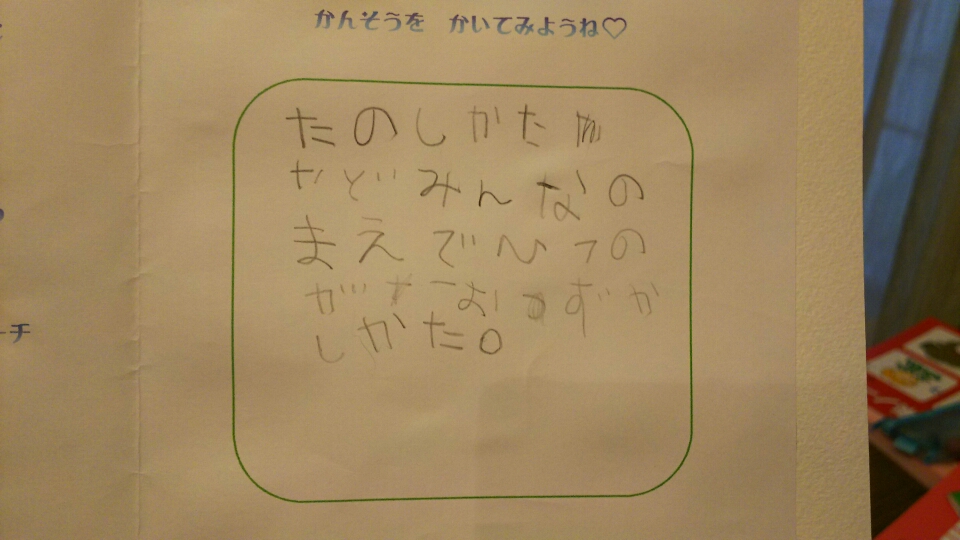 かんそうを かいてみようね♡
たのしかた
けどみんなの
まえでひくの
がすこおずか
しかた。
ーチ